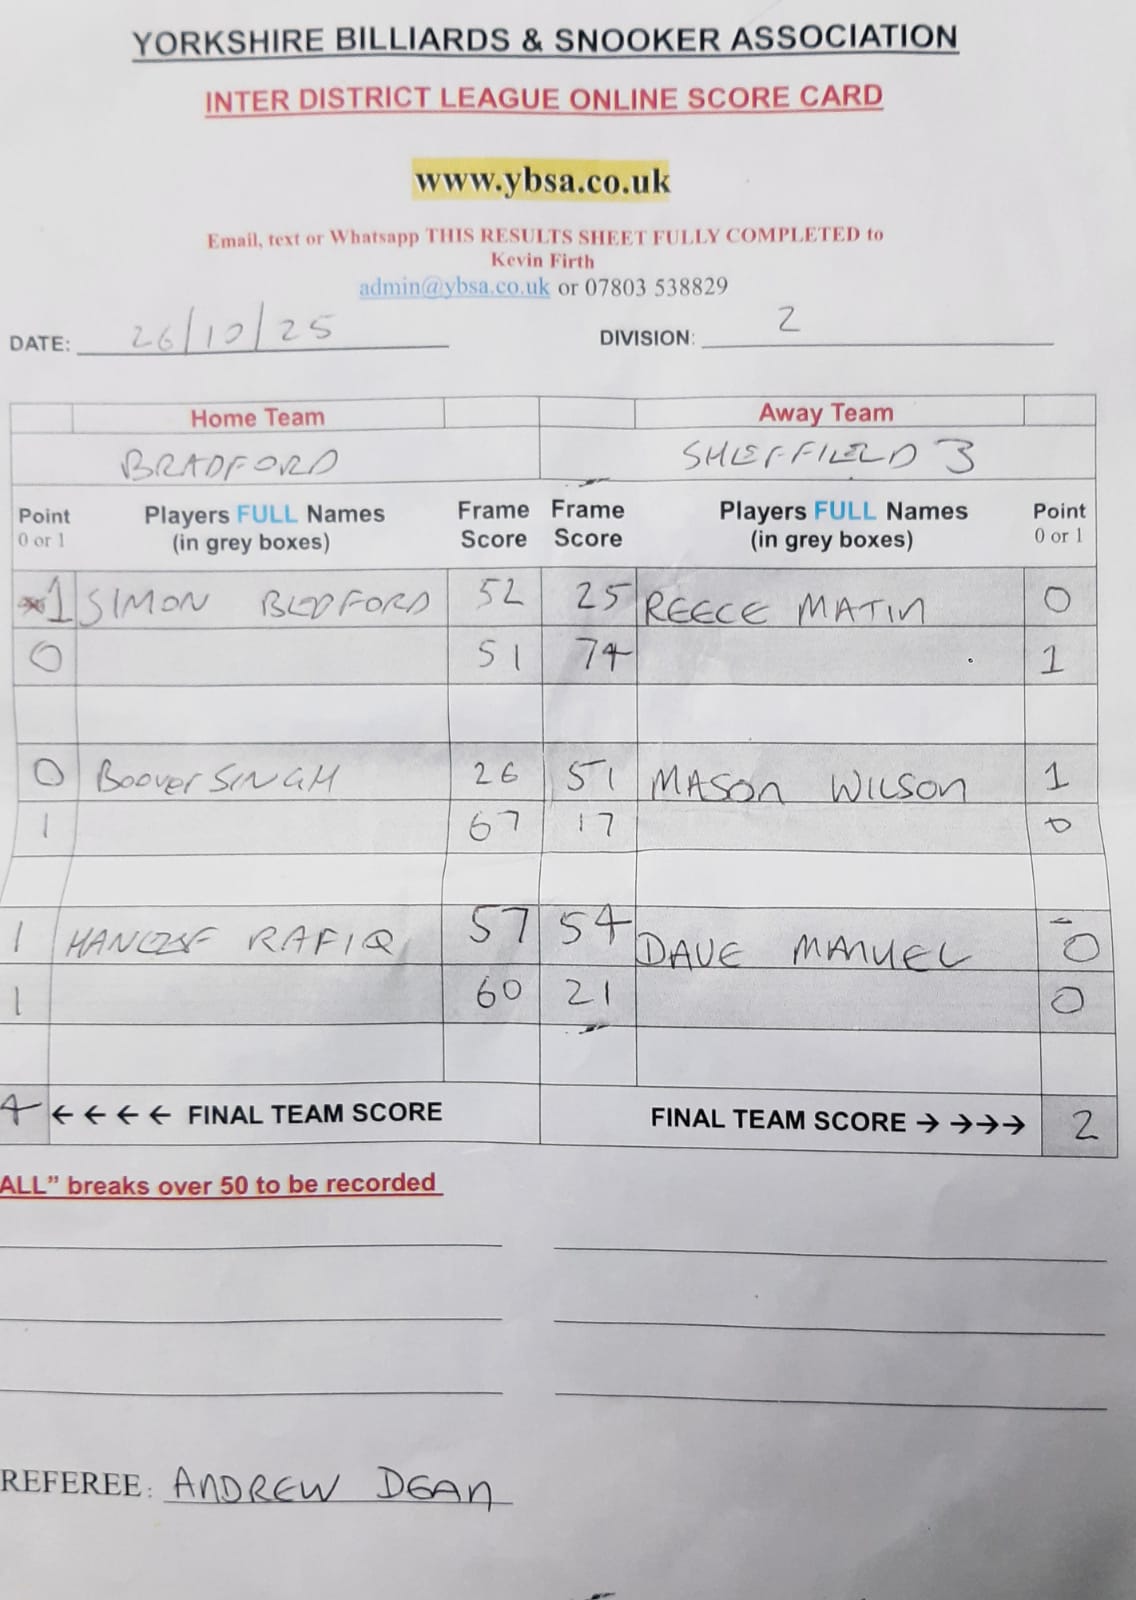 YORKSHIRE BILLIARDS & SNOOKER ASSOCIATION
INTER DISTRICT LEAGUE ONLINE SCORE CARD
www.ybsa.co.uk
Email, text or Whatsapp THIS RESULTS SHEET FULLY COMPLETED to
Kevin Firth
admin@ybsa.co.uk or 07803 538829
DATE: 26/10/25 DIVISION: 2
Home Team Away Team
BRADFORD SHEFFIELD 3
Point Players FULL Names Frame Frame Players FULL Names Point
0 or 1 (in grey boxes) Score Score (in grey boxes) 0 or 1
1 SIMON BEDFORD 52 25 REECE MATIN 0
0 51 74 1
0 Boover SINGH 26 51 MASON WILSON 1
1 67 17 0
1 RAFIQ 57 54 DAVE MANUEL 0
1 60 21 0
4 ← ← ← ← FINAL TEAM SCORE FINAL TEAM SCORE → →→→ 2
ALL” breaks over 50 to be recorded
REFEREE: ANDREW DEAN